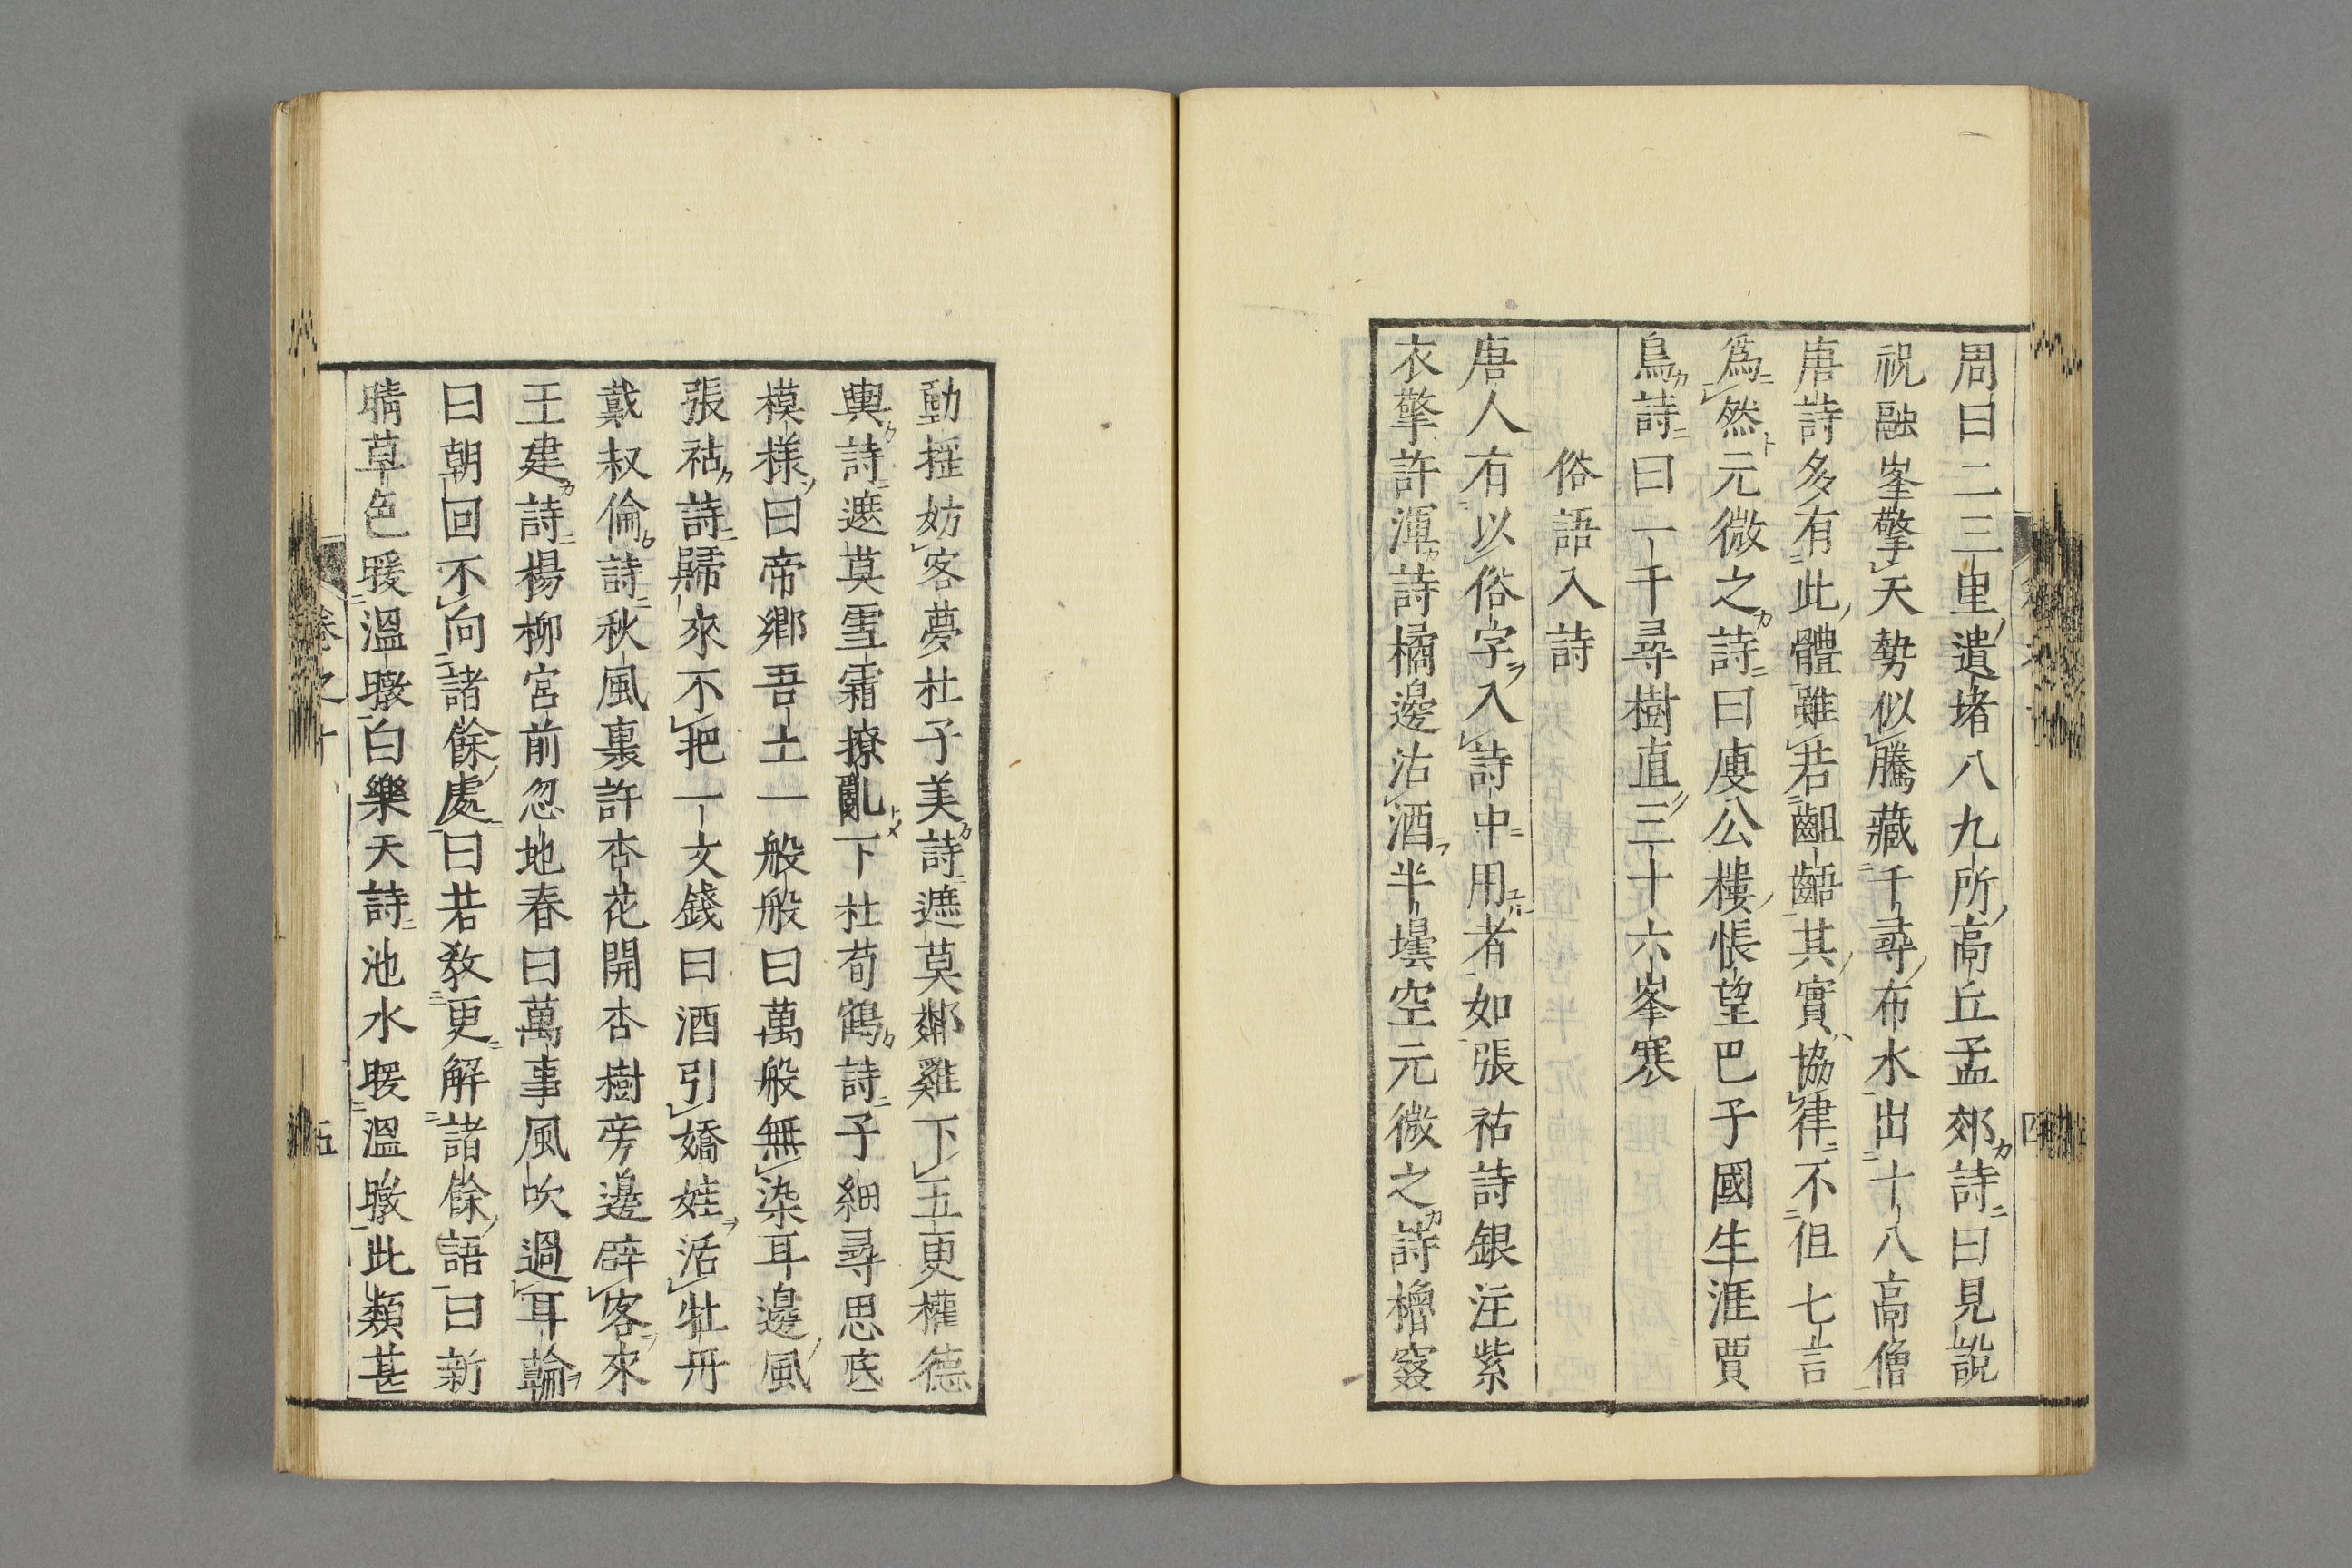 周曰二三里遺堵八九所高丘孟郊詩曰見説
祝融峯擎天勢似騰藏千尋布水出十八高僧
唐詩多有此體雖若齟齬其實協律不徂七言
爲然元微之詩曰庾公樓悵望巴子國生涯賈
鳥詩曰一千尋樹直三十六峯寒
俗語入詩
唐人有以俗字入詩中用者如張祜詩銀注紫
衣擎許渾詩橘邊沽酒半壜空元微之詩櫓窡
動搖妨客夢杜子美詩遮莫鄰雞下五更權德
輿詩遮莫雪霜撩亂下杜荀鶴詩子細尋思底
模樣曰帝鄉吾土一般般曰萬般無染耳邊風
張祜詩歸來不把一文錢曰酒引嬌娃活牡丹
戴叔倫詩秋風裏許杏花開杏樹旁邊醉客來
王建詩楊柳宮前忽地春曰萬事風吹過耳輪
曰朝回不向諸餘處曰若教更解諸餘語曰新
晴草色暖溫暾白樂天詩池水暖溫暾此類甚
卷之十
五
四